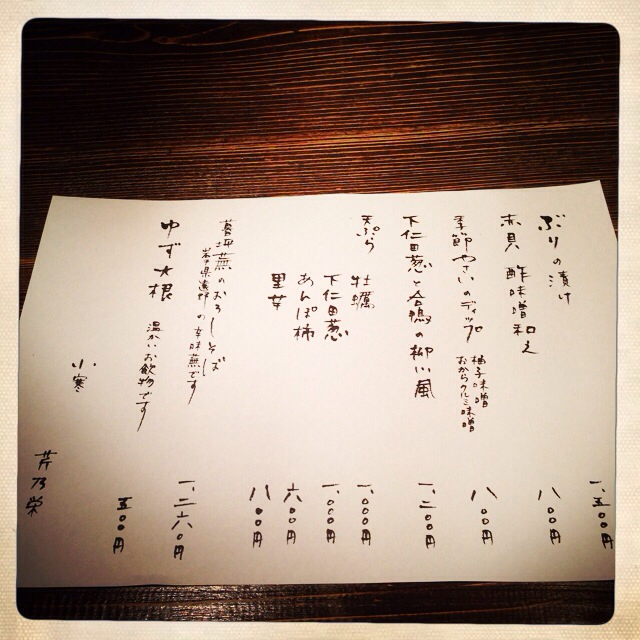 ぶりの漬け 一、五〇〇円
赤貝 酢味噌和え 八〇〇円
季節やさいのディップ 八〇〇円
柚子味噌
おからクルミ味噌
下仁田葱と合鴨の柳川風 一、二〇〇円
天ぷら
牡蠣 一、〇〇〇円
下仁田葱 一、〇〇〇円
あんぽ柿 六〇〇円
里芋 八〇〇円
暮坪蕪のおろしそば 一、二六〇円
岩手県遠野の辛味蕪です
ゆず大根 五〇〇円
温かいお飲物です
小寒
芹乃栄